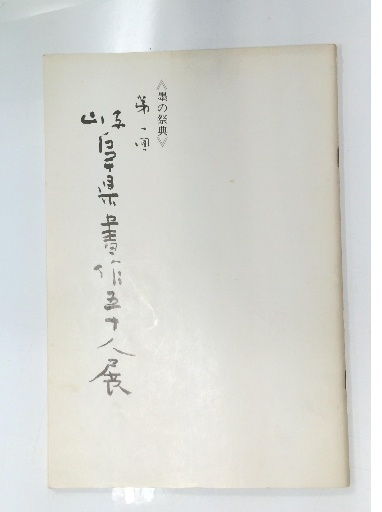 《墨の祭典》
第一回
岐阜県書作五十人展